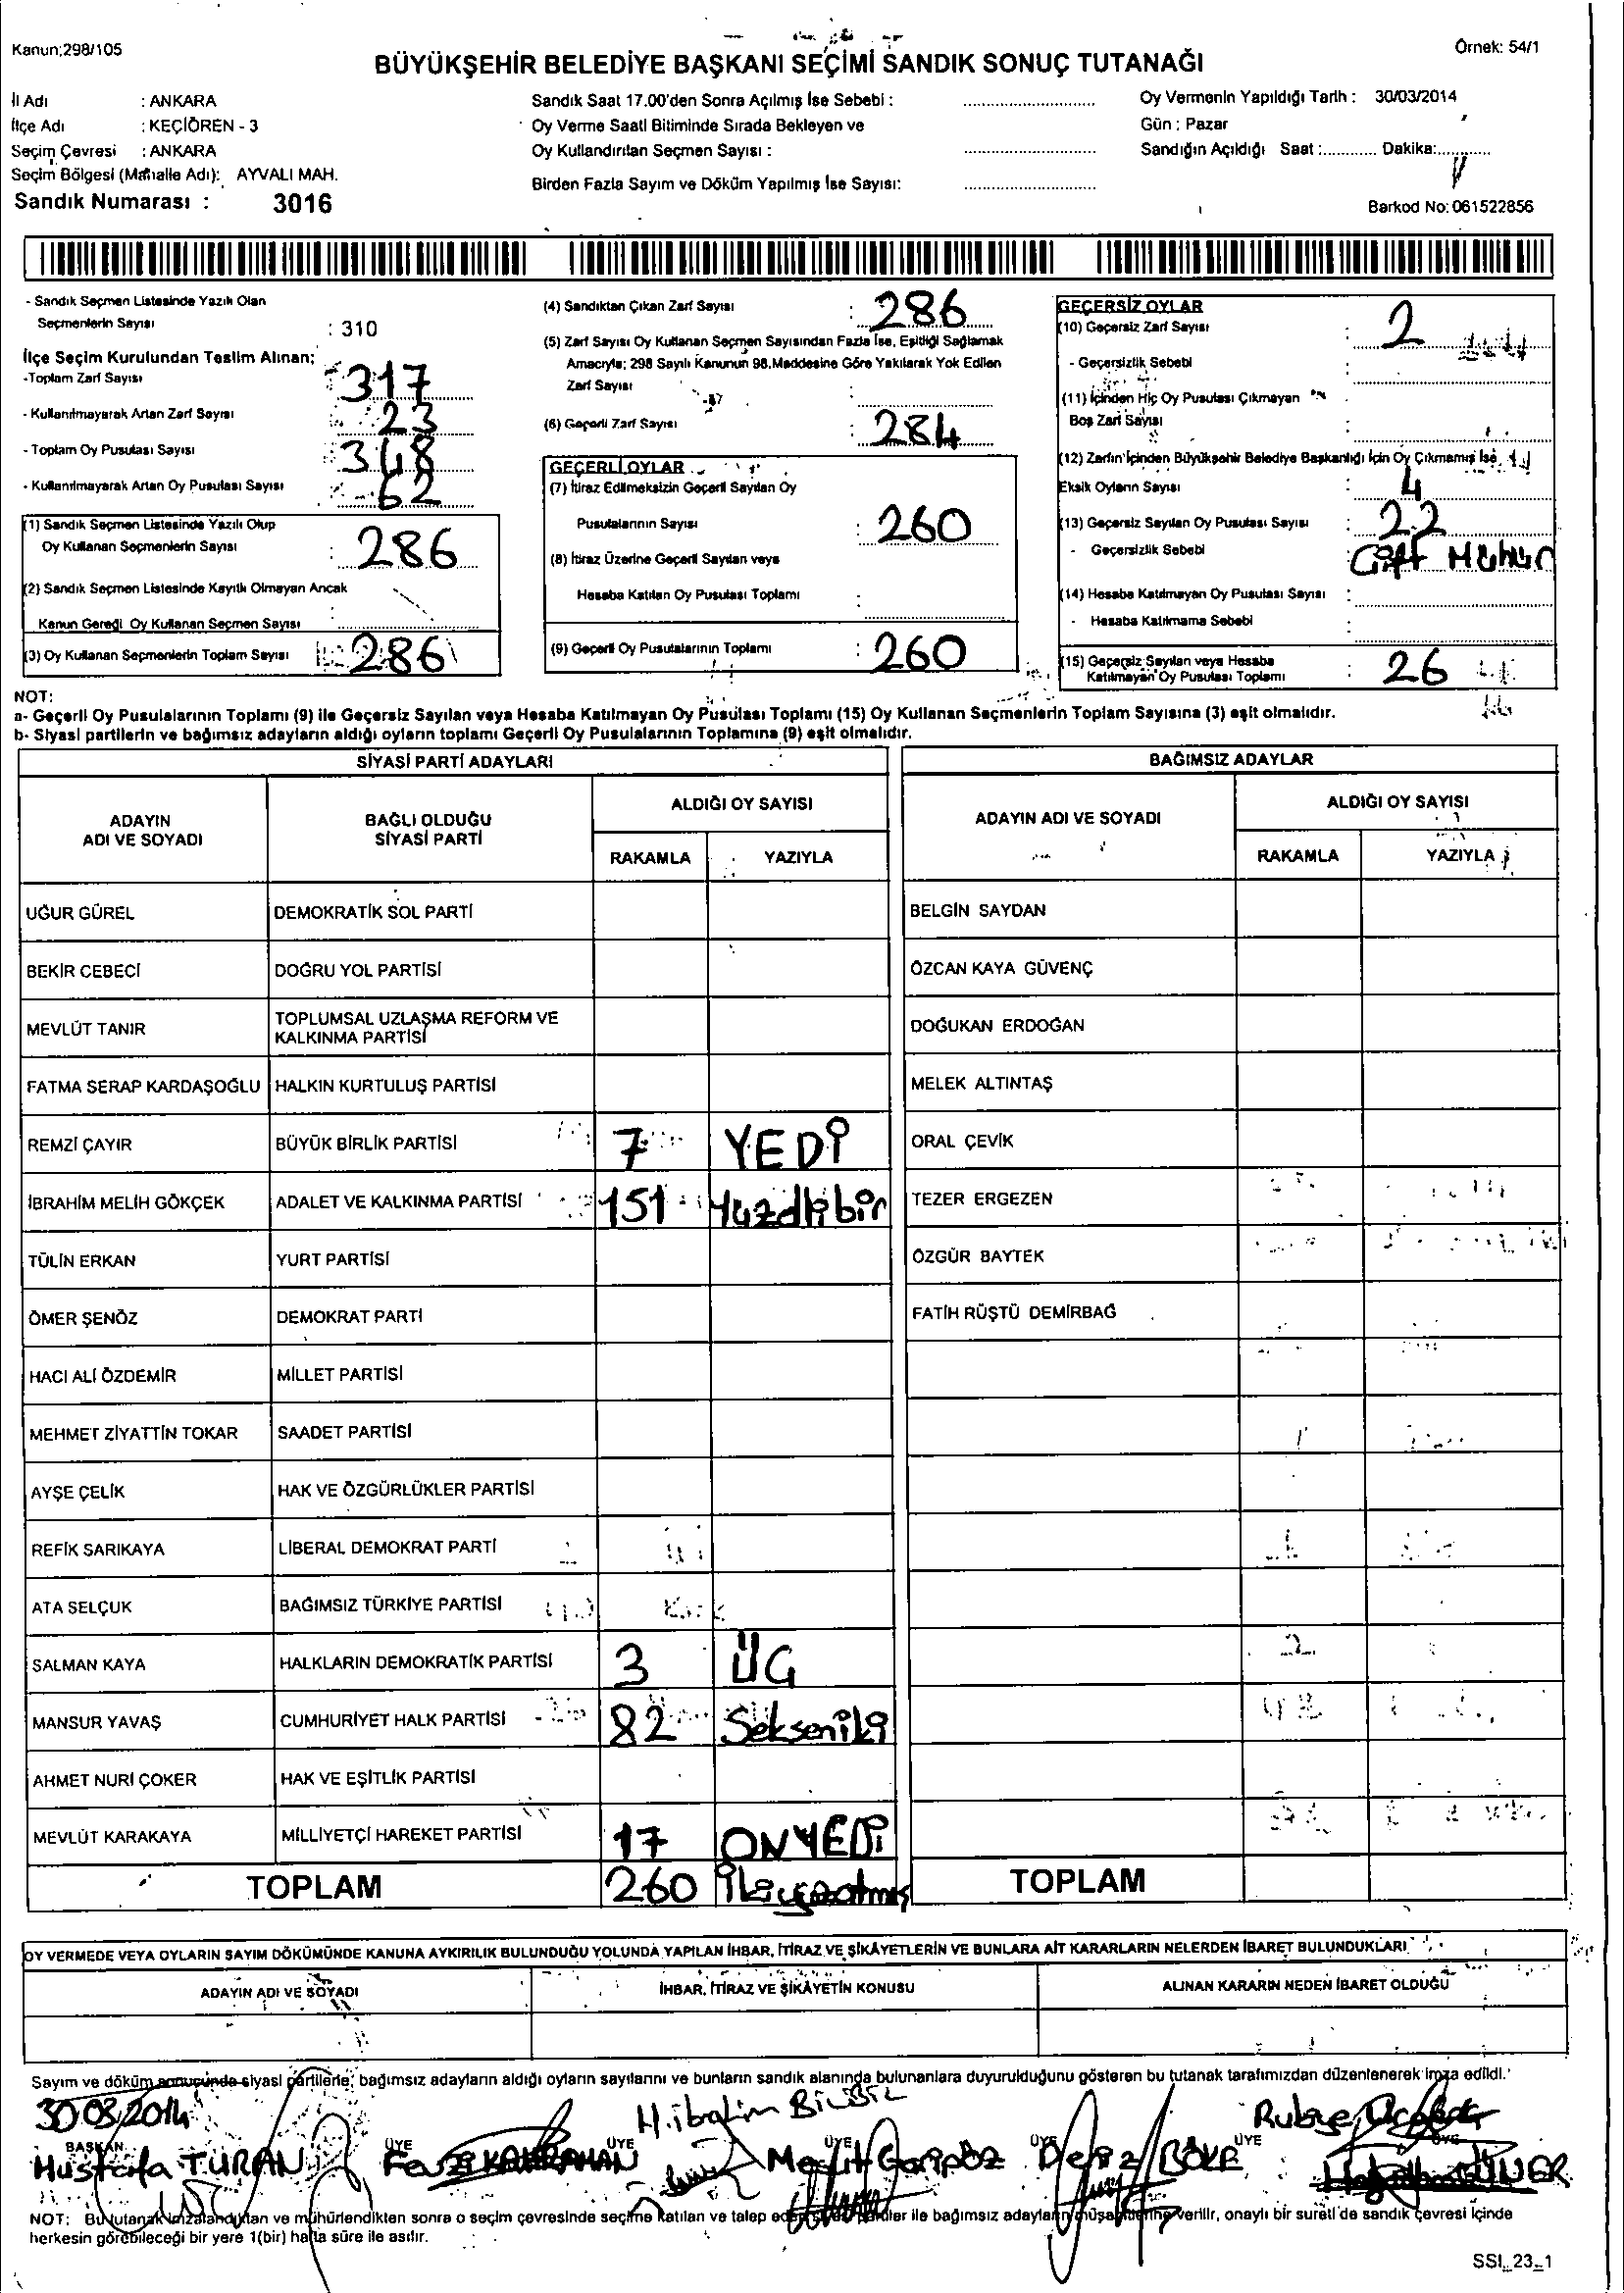 Kanun;298/105
Örnek: 54/1
BÜYÜKŞEHİR BELEDİYE BAŞKANI SEÇİMİ SANDIK SONUÇ TUTANAĞI
İl Adı : ANKARA
İlçe Adı : KEÇİÖREN - 3
Seçim Çevresi : ANKARA
Seçim Bölgesi (Mahalle Adı): AYVALI MAH.
Sandık Numarası : 3016
Sandık Saat 17.00'den Sonra Açılmış İse Sebebi :
Oy Verme Saati Bitiminde Sırada Bekleyen ve
Oy Kullandırılan Seçmen Sayısı :
Birden Fazla Sayım ve Döküm Yapılmış İse Sayısı:
Oy Vermenin Yapıldığı Tarih : 30/03/2014
Gün : Pazar
Sandığın Açıldığı Saat :............ Dakika:............
Barkod No: 061522856
- Sandık Seçmen Listesinde Yazılı Olan
Seçmenlerin Sayısı : 310
İlçe Seçim Kurulundan Teslim Alınan;
-Toplam Zarf Sayısı : 317
- Kullanılmayarak Artan Zarf Sayısı : 23
- Toplam Oy Pusulası Sayısı : 348
- Kullanılmayarak Artan Oy Pusulası Sayısı : 62
(1) Sandık Seçmen Listesinde Yazılı Olup
Oy Kullanan Seçmenlerin Sayısı : 286
(2) Sandık Seçmen Listesinde Kayıtlı Olmayan Ancak
Kanun Gereği Oy Kullanan Seçmen Sayısı :
(3) Oy Kullanan Seçmenlerin Toplam Sayısı : 286
(4) Sandıktan Çıkan Zarf Sayısı : 286
(5) Zarf Sayısı Oy Kullanan Seçmen Sayısından Fazla İse, Eşitliği Sağlamak
Amacıyla; 298 Sayılı Kanunun 98.Maddesine Göre Yakılarak Yok Edilen
Zarf Sayısı
(6) Geçerli Zarf Sayısı : 284
GEÇERLİ OYLAR
(7) İtiraz Edilmeksizin Geçerli Sayılan Oy
Pusulalarının Sayısı : 260
(8) İtiraz Üzerine Geçerli Sayılan veya
Hesaba Katılan Oy Pusulası Toplamı :
(9) Geçerli Oy Pusulalarının Toplamı : 260
GEÇERSİZ OYLAR
(10) Geçersiz Zarf Sayısı : 2
- Geçersizlik Sebebi :
(11) İçinden Hiç Oy Pusulası Çıkmayan
Boş Zarf Sayısı :
(12) Zarfın İçinden Büyükşehir Belediye Başkanlığı İçin Oy Çıkmamış İse
Eksik Oyların Sayısı : 4
(13) Geçersiz Sayılan Oy Pusulası Sayısı : 22
- Geçersizlik Sebebi : Çift Mühür
(14) Hesaba Katılmayan Oy Pusulası Sayısı :
- Hesaba Katılmama Sebebi :
(15) Geçersiz Sayılan veya Hesaba
Katılmayan Oy Pusulası Toplamı : 26
NOT:
a- Geçerli Oy Pusulalarının Toplamı (9) ile Geçersiz Sayılan veya Hesaba Katılmayan Oy Pusulası Toplamı (15) Oy Kullanan Seçmenlerin Toplam Sayısına (3) eşit olmalıdır.
b- Siyasi partilerin ve bağımsız adayların aldığı oyların toplamı Geçerli Oy Pusulalarının Toplamına (9) eşit olmalıdır.
SİYASİ PARTİ ADAYLARI
ADAYIN ADI VE SOYADI
BAĞLI OLDUĞU SİYASİ PARTİ
ALDIĞI OY SAYISI
RAKAMLA YAZIYLA
UĞUR GÜREL DEMOKRATİK SOL PARTİ
BEKİR CEBECİ DOĞRU YOL PARTİSİ
MEVLÜT TANIR TOPLUMSAL UZLAŞMA REFORM VE
KALKINMA PARTİSİ
FATMA SERAP KARDAŞOĞLU HALKIN KURTULUŞ PARTİSİ
REMZİ ÇAYIR BÜYÜK BİRLİK PARTİSİ 7 YEDİ
İBRAHİM MELİH GÖKÇEK ADALET VE KALKINMA PARTİSİ 151 Yüzellibir
TÜLİN ERKAN YURT PARTİSİ
ÖMER ŞENÖZ DEMOKRAT PARTİ
HACI ALİ ÖZDEMİR MİLLET PARTİSİ
MEHMET ZİYATTİN TOKAR SAADET PARTİSİ
AYŞE ÇELİK HAK VE ÖZGÜRLÜKLER PARTİSİ
REFİK SARIKAYA LİBERAL DEMOKRAT PARTİ
ATA SELÇUK BAĞIMSIZ TÜRKİYE PARTİSİ
SALMAN KAYA HALKLARIN DEMOKRATİK PARTİSİ 3 ÜÇ
MANSUR YAVAŞ CUMHURİYET HALK PARTİSİ 82 Sekseniki
AHMET NURİ ÇOKER HAK VE EŞİTLİK PARTİSİ
MEVLÜT KARAKAYA MİLLİYETÇİ HAREKET PARTİSİ 17 ONYEDİ
TOPLAM 260 İkiyüzatmış
BAĞIMSIZ ADAYLAR
ADAYIN ADI VE SOYADI
ALDIĞI OY SAYISI
RAKAMLA YAZIYLA
BELGİN SAYDAN
ÖZCAN KAYA GÜVENÇ
DOĞUKAN ERDOĞAN
MELEK ALTINTAŞ
ORAL ÇEVİK
TEZER ERGEZEN
ÖZGÜR BAYTEK
FATİH RÜŞTÜ DEMİRBAĞ
TOPLAM
OY VERMEDE VEYA OYLARIN SAYIM DÖKÜMÜNDE KANUNA AYKIRILIK BULUNDUĞU YOLUNDA YAPILAN İHBAR, İTİRAZ VE ŞİKÂYETLERİN VE BUNLARA AİT KARARLARIN NELERDEN İBARET BULUNDUKLARI
ADAYIN ADI VE SOYADI İHBAR, İTİRAZ VE ŞİKÂYETİN KONUSU ALINAN KARARIN NEDEN İBARET OLDUĞU
Sayım ve döküm sonucunda siyasi partilerle, bağımsız adayların aldığı oyların sayılarını ve bunların sandık alanında bulunanlara duyurulduğunu gösteren bu tutanak tarafımızdan düzenlenerek imza edildi.
30.03.2014
H.ibrahim
BAŞKAN ÜYE ÜYE ÜYE ÜYE ÜYE
Mustafa TURAN
KAHRAMAN
NOT: Bu tutanak imzalandıktan ve mühürlendikten sonra o seçim çevresinde seçime katılan ve talep eden siyasi partiler ile bağımsız adayların müşahitlerine verilir, onaylı bir sureti de sandık çevresi içinde
herkesin görebileceği bir yere 1(bir) hafta süre ile asılır.
SSI_23_1